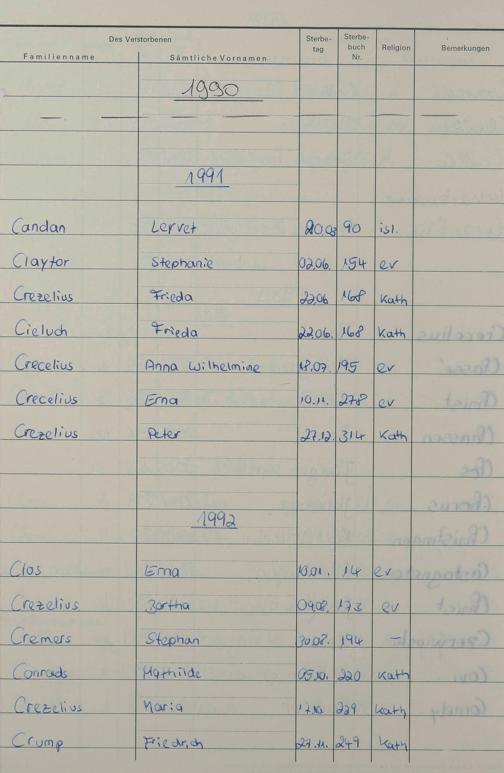 Des Verstorbenen
Familienname Sämtliche Vornamen Sterbe-tag Sterbe-buch Nr. Religion Bemerkungen
1990
— — — — — — —
1991
Candan Lervet 20.03 90 isl.
Claytor Stephanie 02.06. 154 ev
Crezelius Frieda 22.06 168 Kath
Cieluch Frieda 22.06. 168 Kath
Crecelius Anna Wilhelmine 18.07. 195 ev
Crecelius Erna 10.11. 278 ev
Crezelius Peter 27.12. 314 Kath
1992
Clos Erna 10.01. 14 ev
Crezelius Bertha 09.08. 173 ev
Cremers Stephan 30.08. 194 —
Conrads Mathilde 05.10. 220 Kath
Crezelius Maria 17.10. 229 Kath
Crump Friedrich 27.11. 249 Kath